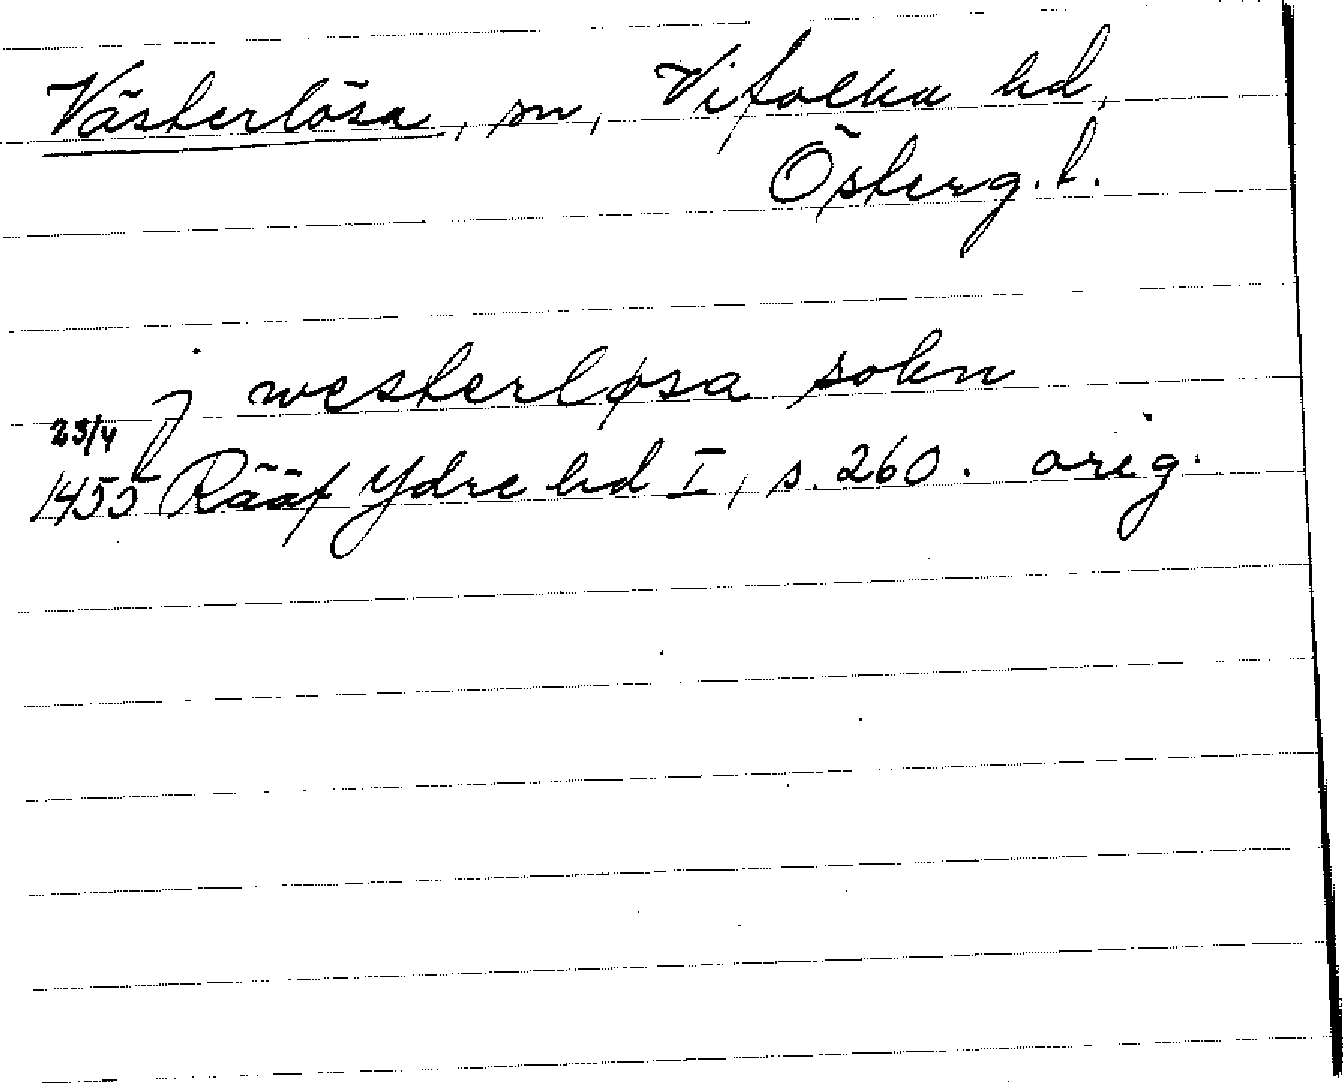 Västerlösa, sn, Vifolka hd,
Österg. l.
j westerløsa sokn
23/4
1455 Rääf Ydre hd I, s. 260. orig.